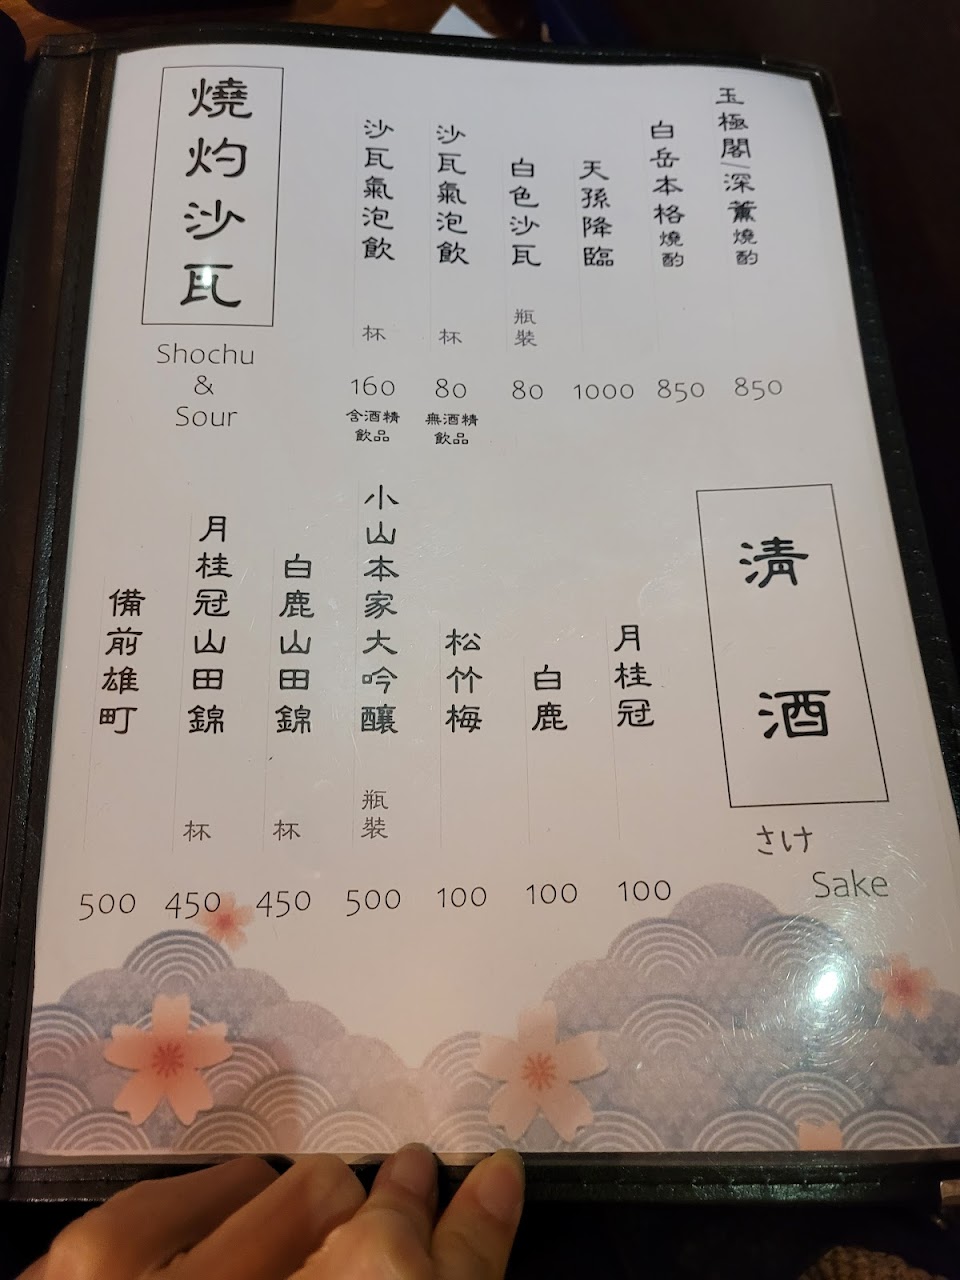 燒灼沙瓦
Shochu
&
Sour
玉極閣/深薰燒酌
850
白岳本格燒酌
850
天孫降臨
1000
白色沙瓦 瓶裝
80
沙瓦氣泡飲 杯
80
無酒精
飲品
沙瓦氣泡飲 杯
160
含酒精
飲品
清酒
さけ
Sake
月桂冠
100
白鹿
100
松竹梅
100
小山本家大吟釀 瓶裝
500
白鹿山田錦 杯
450
月桂冠山田錦 杯
450
備前雄町
500